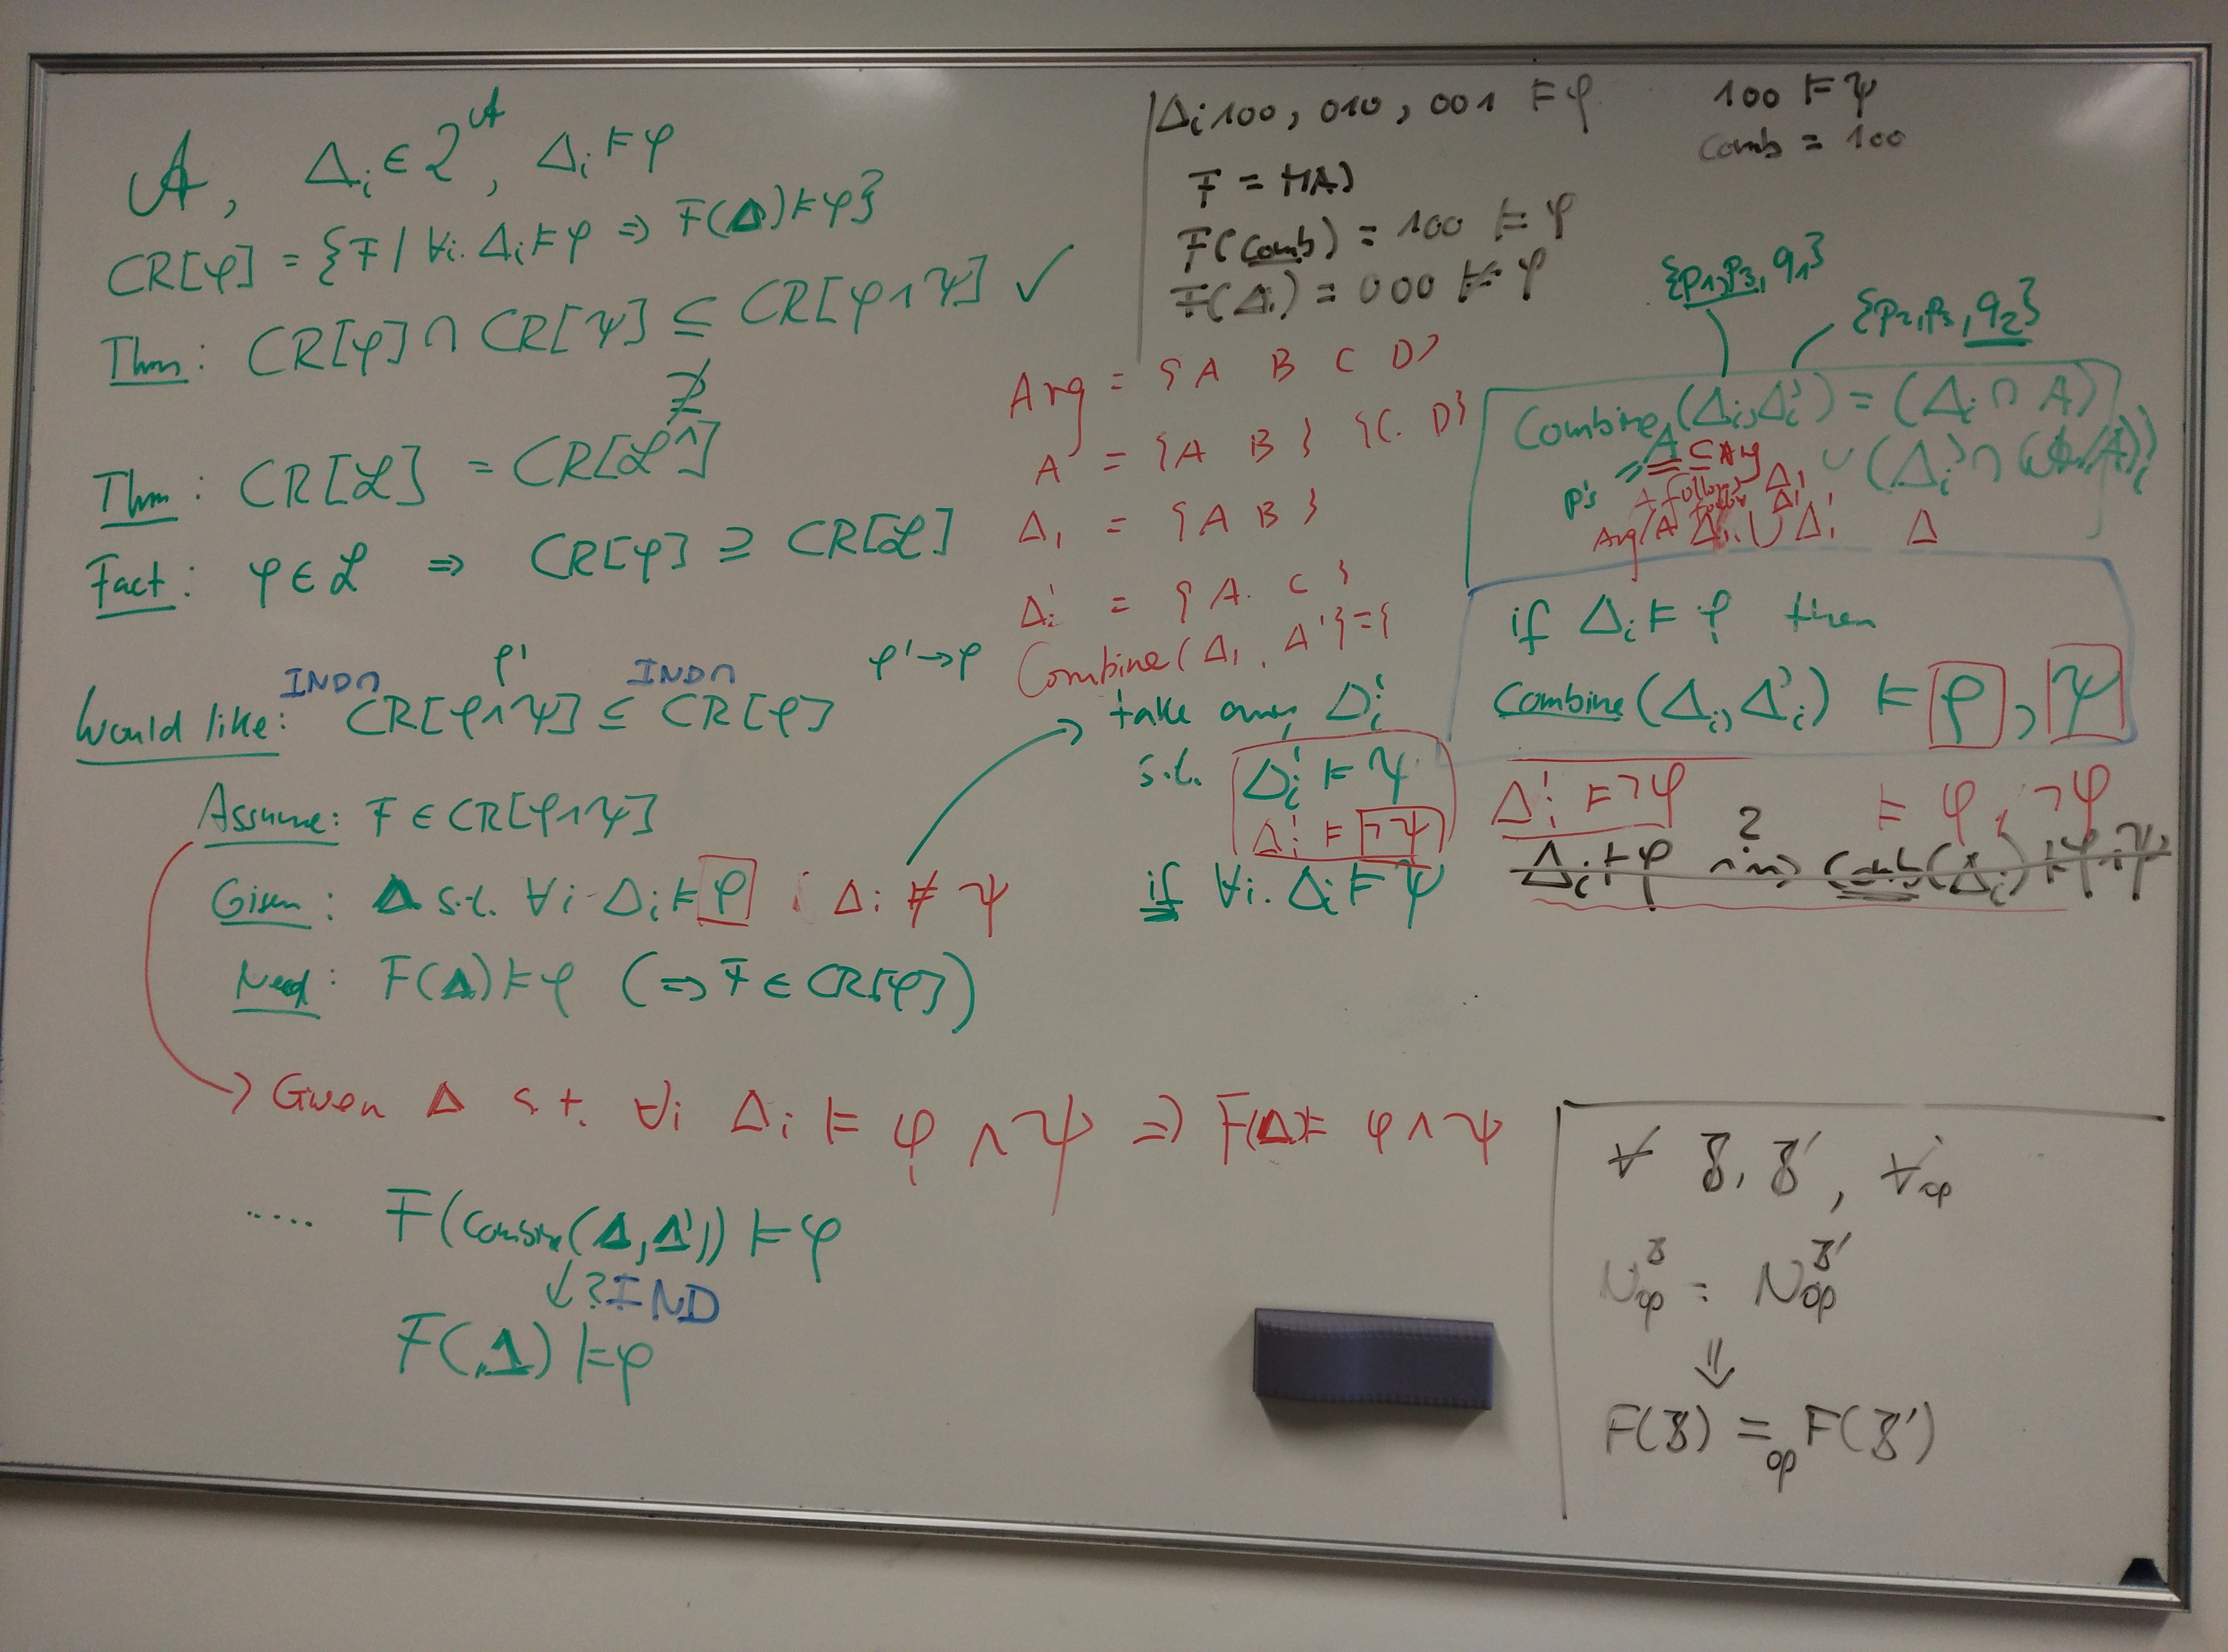 𝒜, Δᵢ ∈ 2^𝒜, Δᵢ ⊨ φ
CR[φ] = {F | ∀i. Δᵢ ⊨ φ ⇒ F(Δ) ⊨ φ}
Thm: CR[φ] ∩ CR[ψ] ⊆ CR[φ∧ψ] ✓
⊉
Thm: CR[ℒ] = CR[ℒ^∧]
Fact: φ ∈ ℒ ⇒ CR[φ] ⊇ CR[ℒ]
IND∩ φ' IND∩ φ' → φ
Would like: CR[φ∧ψ] ⊆ CR[φ]
Assume: F ∈ CR[φ∧ψ]
Given: Δ s.t. ∀i. Δᵢ ⊨ φ Δᵢ ⊭ ψ
Need: F(Δ) ⊨ φ (⇒ F ∈ CR[φ])
→ Given Δ s.t. ∀i Δᵢ ⊨ φ ∧ ψ ⇒ F(Δ) ⊨ φ ∧ ψ
..... F(Combine(Δ, Δ')) ⊨ φ
↓ ? IND
F(Δ) ⊨ φ
Δᵢ 100, 010, 001 ⊨ φ
F = MAJ
F(Comb) = 100 ⊨ φ
F(Δᵢ) = 000 ⊭ φ
100 ⊨ ψ
Comb = 100
Arg = { A B C D }
A = { A B } { C. D }
Δ₁ = { A B }
Δᵢ' = { A. C }
Combine(Δ₁, Δ') = {
→ take any Δᵢ'
s.t. Δᵢ' ⊨ ψ
Δᵢ' ⊨ ¬ψ
if ∀i. Δᵢ ⊨ ψ
{p₁, p₃, q₁}
{p₂, p₃, q₂}
Combine_A(Δᵢ, Δᵢ') = (Δᵢ ∩ A)
∪ (Δᵢ' ∩ (𝒜/A))
p's = ⊆ Arg
A follow Δ₁
Arg/A follow Δ'
Δᵢ ∪ Δᵢ' Δ
if Δᵢ ⊨ φ then
Combine(Δᵢ, Δᵢ') ⊨ φ, ψ
Δᵢ' ⊨ ¬φ ⊨ φ, ¬φ
?
Δᵢ ⊨ φ ⇝ Comb(Δᵢ) ⊨ φ, ψ
∀ B, B', ∀φ
N_φ^B = N_φ^B'
⇓
F(B) =_φ F(B')